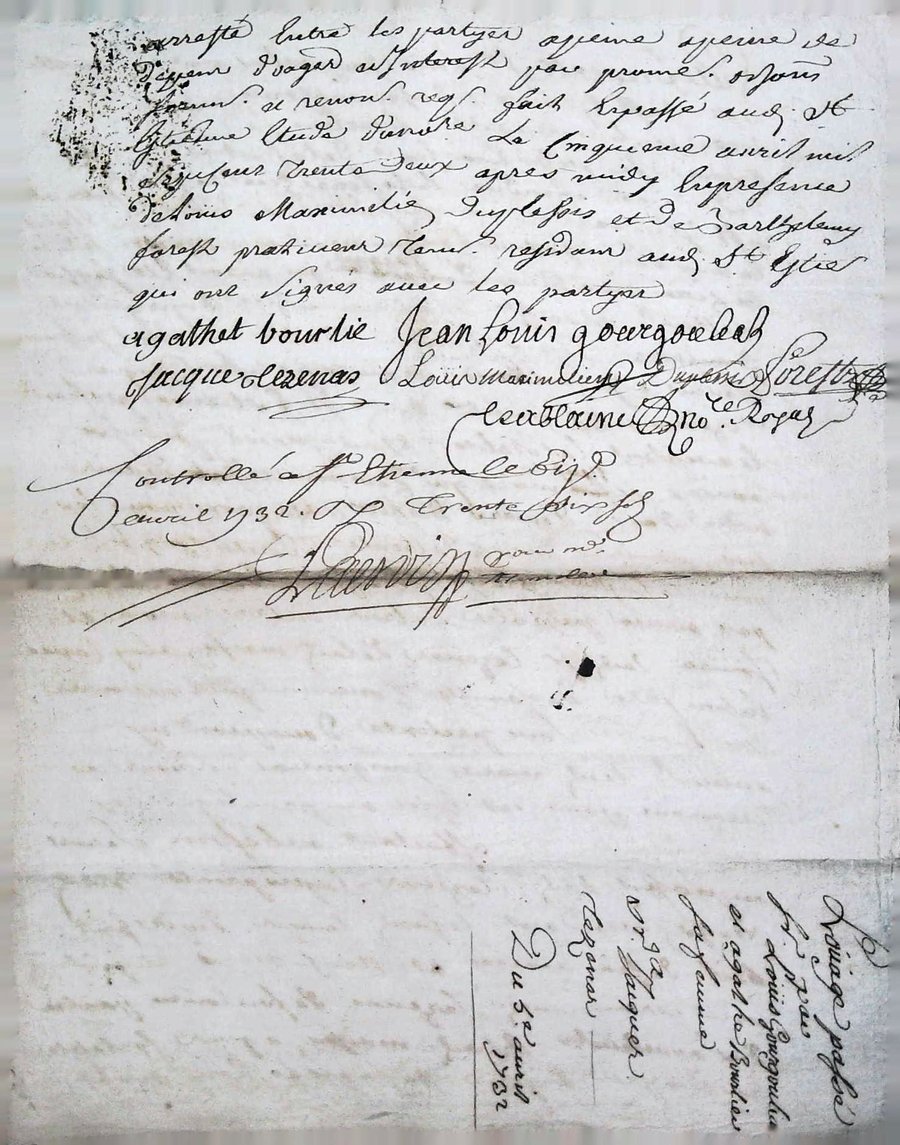 arresté Entre les partyes apeine apeine de
depens domag et Interest par promes.
Soumis. et renon. reqs. fait Et passé aud. St
Estienne Etude dunore Le Cinquieme auril mil
sept Cens Trente deux apres midy En presence
de Louis Maximilien Duplessis et de Barthelemy
forest praticiens Tems. residant aud. St Estiene
qui ont signés auec les partyes
agathet bourlie Jean Louis gourgouliah
Jacque Clezenas Louis Maximilien Duplessis Forest
Lesablaine nore. Royal
Controllé a St. Etienne le
auril 1732. Trente Six sols
pour mr.
Loüage passé
pr. Jean
Louis Gourgoulia
et agathe Bourlier
sa femme
Jacques
Clezenas
Du 5e. auril
1732